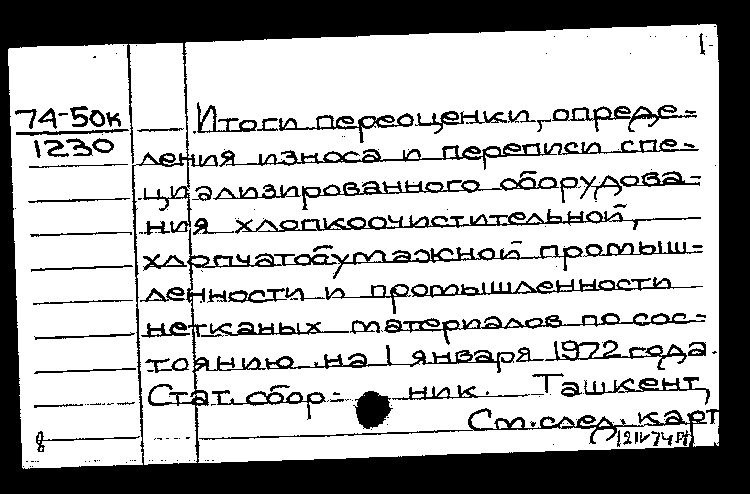 1
74-50к
1230
Итоги переоценки, опреде=
ления износа и переписи спе=
циализированного оборудова=
ния хлопкоочистительной,
хлопчатобумажной промыш=
ленности и промышленности
нетканых материалов по сос=
тоянию на 1 января 1972 года.
Стат. сбор= ник. Ташкент,
См. след. карт
8